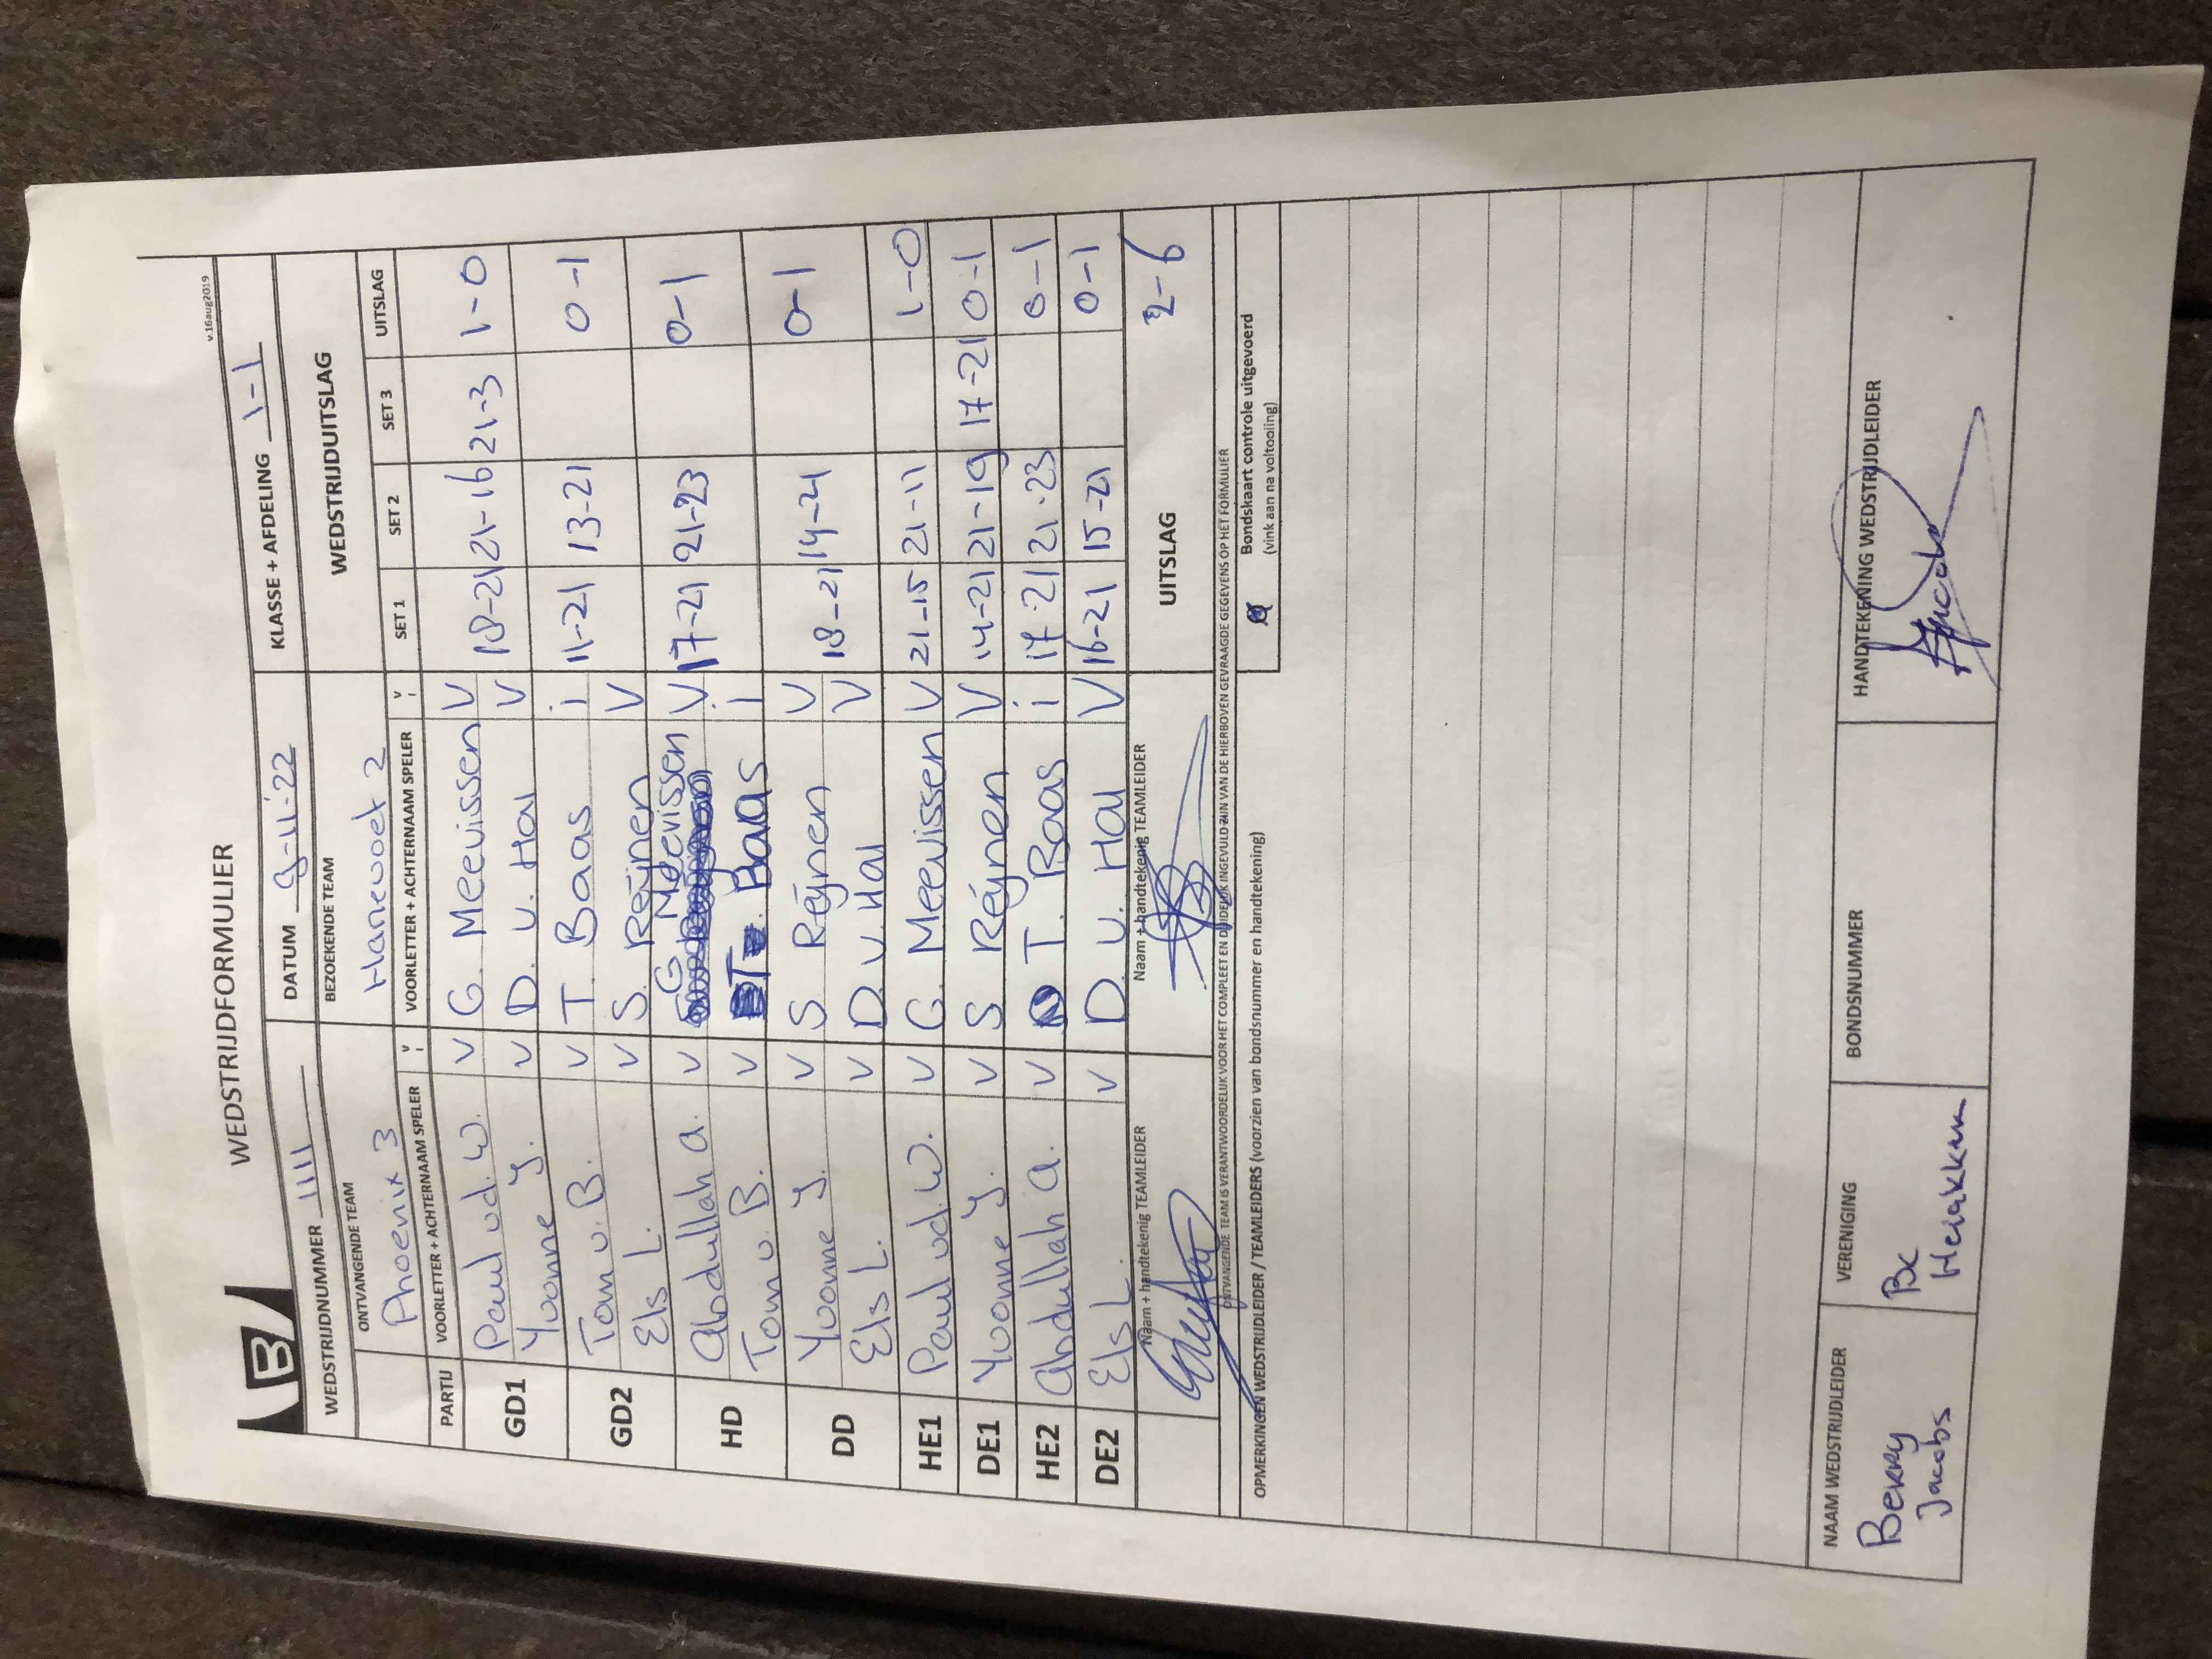 v.16aug2019
B WEDSTRIJDFORMULIER
WEDSTRIJDNUMMER 1111 DATUM 9-11-'22 KLASSE + AFDELING 1-1
ONTVANGENDE TEAM BEZOEKENDE TEAM WEDSTRIJDUITSLAG
Phoenix 3 Hanewoet 2
PARTIJ VOORLETTER + ACHTERNAAM SPELER V I VOORLETTER + ACHTERNAAM SPELER V I SET 1 SET 2 SET 3 UITSLAG
GD1 Paul vd. W. V G. Meevissen V 18-21 21-16 21-3 1-0
Yvonne Y. V D. v. Hal V
GD2 Tom v. B. V T. Baas i 11-21 13-21 0-1
Els L. V S. Reijnen V
HD Abdullah a. V G Meevissen V 17-21 21-23 0-1
Tom v. B. V T. Baas i
DD Yvonne Y. V S Reijnen V 18-21 14-21 0-1
Els L. V D v. Hal V
HE1 Paul vd. W. V G. Meevissen V 21-15 21-11 1-0
DE1 Yvonne Y. V S Reijnen V 14-21 21-19 17-21 0-1
HE2 Abdullah a. V T. Baas i 17-21 21-23 0-1
DE2 Els L. V D v. Hal V 16-21 15-21 0-1
Naam + handtekenig TEAMLEIDER Naam + handtekenig TEAMLEIDER UITSLAG 2-6
ONTVANGENDE TEAM IS VERANTWOORDELIJK VOOR HET COMPLEET EN DUIDELIJK INGEVULD ZIJN VAN DE HIERBOVEN GEVRAAGDE GEGEVENS OP HET FORMULIER
OPMERKINGEN WEDSTRIJDLEIDER / TEAMLEIDERS (voorzien van bondsnummer en handtekening) Bondskaart controle uitgevoerd
(vink aan na voltooiing)
NAAM WEDSTRIJDLEIDER VERENIGING BONDSNUMMER HANDTEKENING WEDSTRIJDLEIDER
Berry Bc
Jacobs Herakken